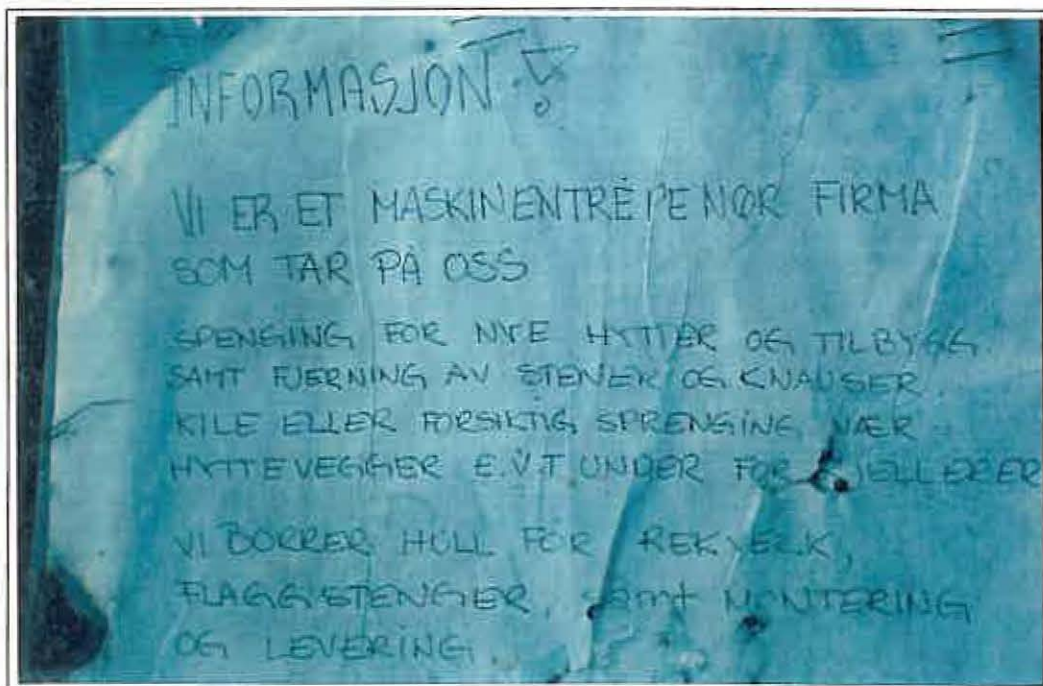 INFORMASJON !
VI ER ET MASKINENTRÉPENØR FIRMA
SOM TAR PÅ OSS
SPENGING FOR NYE HYTTER OG TILBYGG
SAMT FJERNING AV STENER OG KNAUSER
KILE ELLER FORSIKTIG SPRENGING NÆR
HYTTEVEGGER E.V.T UNDER FOR KJELLERER
VI BORRER HULL FOR REKVERK,
FLAGGSTENGER, samt MONTERING
OG LEVERING.